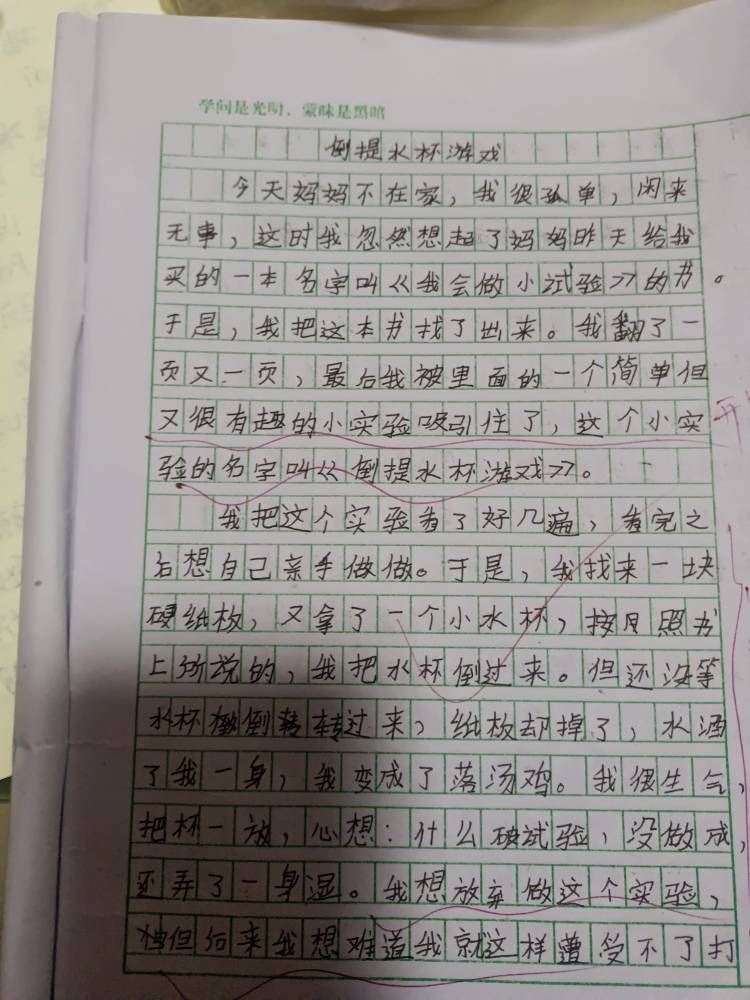 学问是光明，蒙昧是黑暗
倒提水杯游戏
今天妈妈不在家，我很孤单，闲来
无事，这时我忽然想起了妈妈昨天给我
买的一本名字叫《我会做小试验》的书。
于是，我把这本书找了出来。我翻了一
页又一页，最后我被里面的一个简单但
又很有趣的小实验吸引住了，这个小实
验的名字叫《倒提水杯游戏》。
我把这个实验看了好几遍，看完之
后想自己亲手做做。于是，我找来一块
硬纸板，又拿了一个小水杯，按照书
上所说的，我把水杯倒过来。但还没等
水杯倒转过来，纸板却掉了，水洒
了我一身，我变成了落汤鸡。我很生气，
把杯一放，心想：什么破试验，没做成，
还弄了一身湿。我想放弃做这个实验，
但后来我想难道我就这样遭受不了打